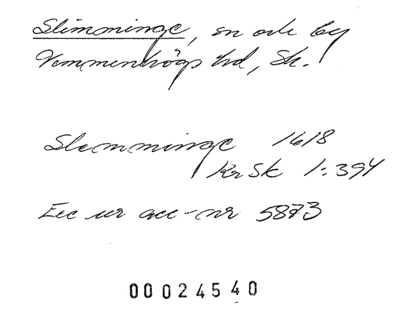 Slimminge, sn och by
Vemmenhögs hd, Sk.
Slemminge 1618
KrSk 1:394
Exc ur acc-nr 5873
00024540